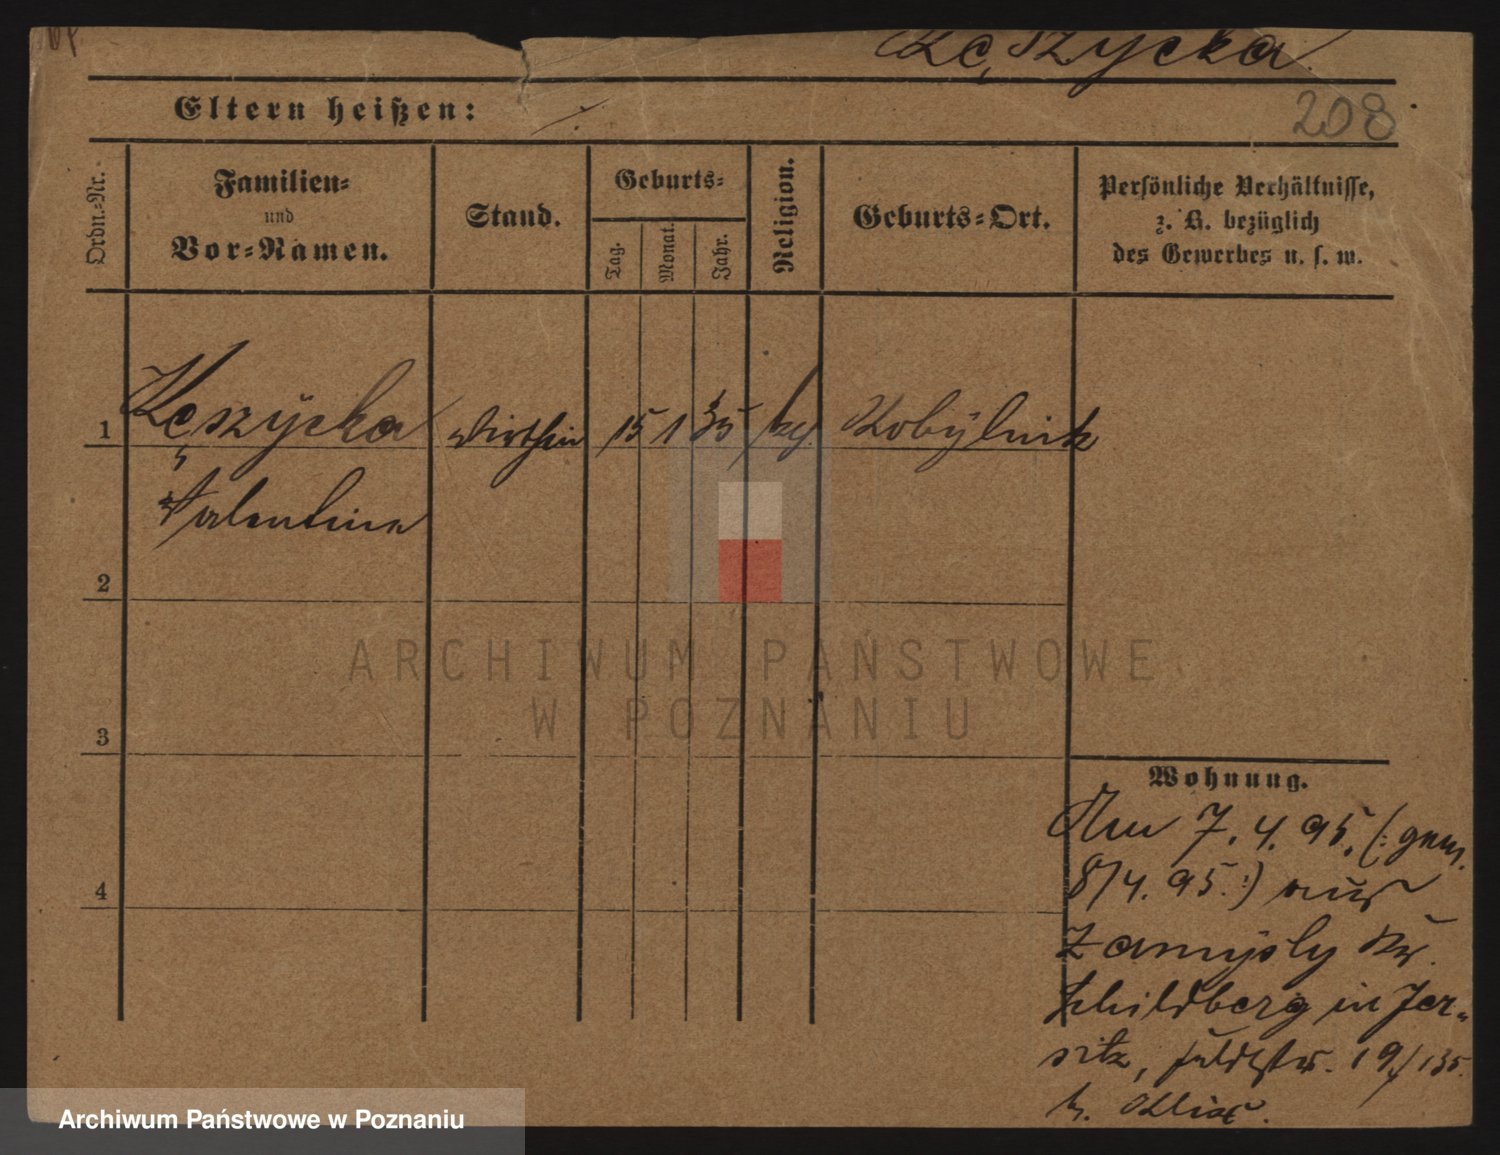 Kęszycka
208
Eltern heißen:
Ordn.-Nr.
Familien-
und
Vor-Namen.
Stand.
Geburts-
Tag.
Monat.
Jahr.
Religion.
Geburts-Ort.
Persönliche Verhältnisse,
z. B. bezüglich
des Gewerbes u. s. w.
1 Kęszycka Wirthin 15 1 35 kg Kobylnik
Valentina
2
3
4
ARCHIWUM PAŃSTWOWE
W POZNANIU
Wohnung.
Am 7. 4. 95. (: gem.
8/4. 95. :) aus
Zamysly Kr.
Schildberg in Jer-
sitz, 19/135.
b.
Archiwum Państwowe w Poznaniu